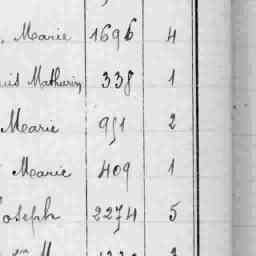 Marie 1696 4
Mathurin 338 1
Marie 951 2
Marie 409 1
Joseph 2274 5